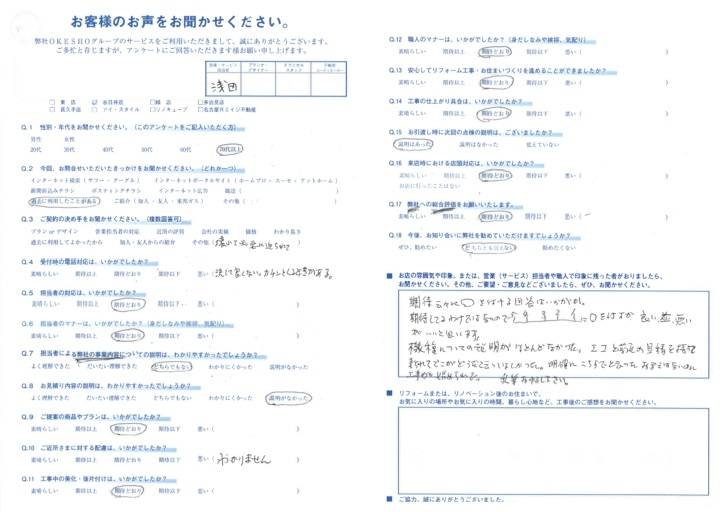 お客様のお声をお聞かせください。
弊社OKESHOグループのサービスをご利用いただきまして、誠にありがとうございます。
ご多忙と存じますが、アンケートにご回答いただきます様お願い申し上げます。
営業・サービス担当者
プランナー デザイナー
テクニカル スタッフ
不動産
浅田
□東店 ☑春日井店 □緑店 □多治見店
□長久手店 □アイ・スタイル □リノキューブ □名古屋キミイ不動産
Q.1 性別・年代をお聞かせください。（このアンケートをご記入いただく方）
男性 女性
20代 30代 40代 50代 60代 70代以上
Q.2 今回、お問合せいただいたきっかけをお聞かせください。（どれか一つ）
インターネット検索（ヤフー・グーグル） インターネットポータルサイト（ホームプロ・スーモ・アットホーム）
新聞折込みチラシ ポスティングチラシ インターネット広告 雑誌（ ）
過去に利用したことがある ご紹介（知人・友人・東邦ガス） その他（ ）
Q.3 ご契約の決め手をお聞かせください。（複数回答可）
プラン or デザイン 営業担当者の対応 近所の評判 会社の実績 価格 わかり易さ
過去に利用してよかったから 知人・友人からの紹介 その他（ ）
Q.4 受付時の電話対応は、いかがでしたか？
素晴らしい 期待以上 期待どおり 期待以下 悪い（ ）
Q.5 担当者の対応は、いかがでしたか？
素晴らしい 期待以上 期待どおり 期待以下 悪い（ ）
Q.6 担当者のマナーは、いかがでしたか？（身だしなみや挨拶、気配り）
素晴らしい 期待以上 期待どおり 期待以下 悪い（ ）
Q.7 担当者による弊社の事業内容についての説明は、わかりやすかったでしょうか？
よく理解できた だいたい理解できた どちらでもない わかりにくかった 説明がなかった
Q.8 お見積り内容の説明は、わかりやすかったでしょうか？
よく理解できた だいたい理解できた どちらでもない わかりにくかった 説明がなかった
Q.9 ご提案の商品やプランは、いかがでしたか？
素晴らしい 期待以上 期待どおり 期待以下 悪い（ ）
Q.10 ご近所さまに対する配慮は、いかがでしたか？
素晴らしい 期待以上 期待どおり 期待以下 悪い（ わかりません ）
Q.11 工事中の美化・後片付けは、いかがでしたか？
素晴らしい 期待以上 期待どおり 期待以下 悪い（ ）
Q.12 職人のマナーは、いかがでしたか？（身だしなみや挨拶、気配り）
素晴らしい 期待以上 期待どおり 期待以下 悪い（ ）
Q.13 安心してリフォーム工事・お住まいづくりを進めることができましたか？
素晴らしい 期待以上 期待どおり 期待以下 悪い（ ）
Q.14 工事の仕上がり具合は、いかがでしたか？
素晴らしい 期待以上 期待どおり 期待以下 悪い（ ）
Q.15 お引渡し時に次回の点検の説明は、ございましたか？
説明はあった 説明はなかった 覚えていない
Q.16 来店時における店頭対応は、いかがでしたか？
素晴らしい 期待以上 期待どおり 期待以下 悪い（ ）
お店に行ったことはない
Q.17 弊社への総合評価をお願いいたします。
素晴らしい 期待以上 期待どおり 期待以下 悪い（ ）
Q.18 今後、お知り合いに弊社を勧めていただけますでしょうか？
ぜひ、勧めたい どちらとも言えない 勧めたくない
■ お店の雰囲気や印象。または、営業（サービス）担当者や職人で印象に残った者がおりましたら、
お聞かせください。その他、ご要望・ご意見などございましたら、ぜひ、お聞かせください。
■ リフォームまたは、リノベーション後のお住まいで、
お気に入りの場所やお気に入りの時間、暮らし心地など、工事後のご感想をお聞かせください。
■ ご協力、誠にありがとうございました。